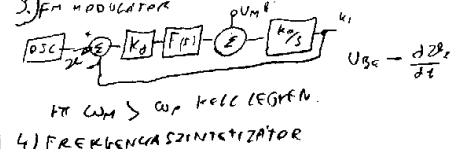 3.) FM MODULÁTOR
UM
OSC + Σ Kd F(s) Σ Ko/s ki
UBE ~ dϑi/dt
ITT ωM > ωP KELL LEGYEN.
4) FREKVENCIASZINTETIZÁTOR